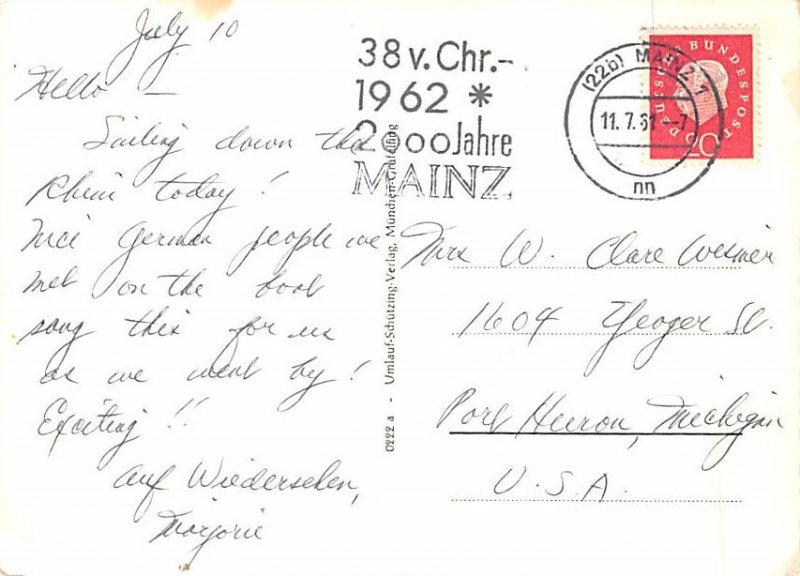 July 10
Hello —
Sailing down the
Rhein today!
Nice German people we
met on the boat
sang this for us
as we went by!
Exciting!!
Auf Wiedersehen,
Marjorie
38 v. Chr.-
1962 *
2000 Jahre
MAINZ
(22b) MAINZ 1
11. 7. 61.--7
nn
DEUTSCHE BUNDESPOST
20
0222 a - Umlauf-Schützing-Verlag, München-Gräfelfing
Mrs W. Clare Wesmer
1604 Yeager St.
Port Huron, Michigan
U.S.A.